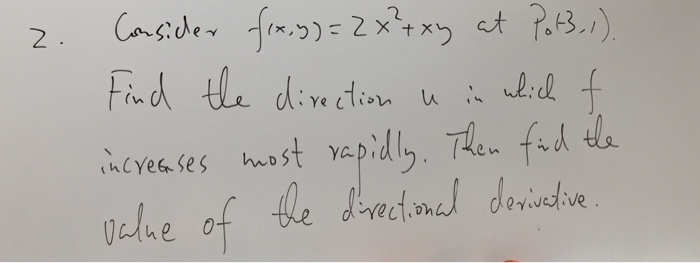 2. Consider f(x,y) = 2x²+xy at P₀(-3,1).
Find the direction u in which f
increases most rapidly. Then find the
value of the directional derivative.